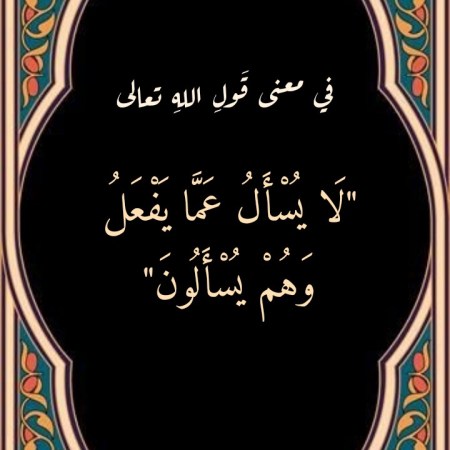 في معنى قَولِ اللهِ تعالى
"لَا يُسْأَلُ عَمَّا يَفْعَلُ
وَهُمْ يُسْأَلُونَ"